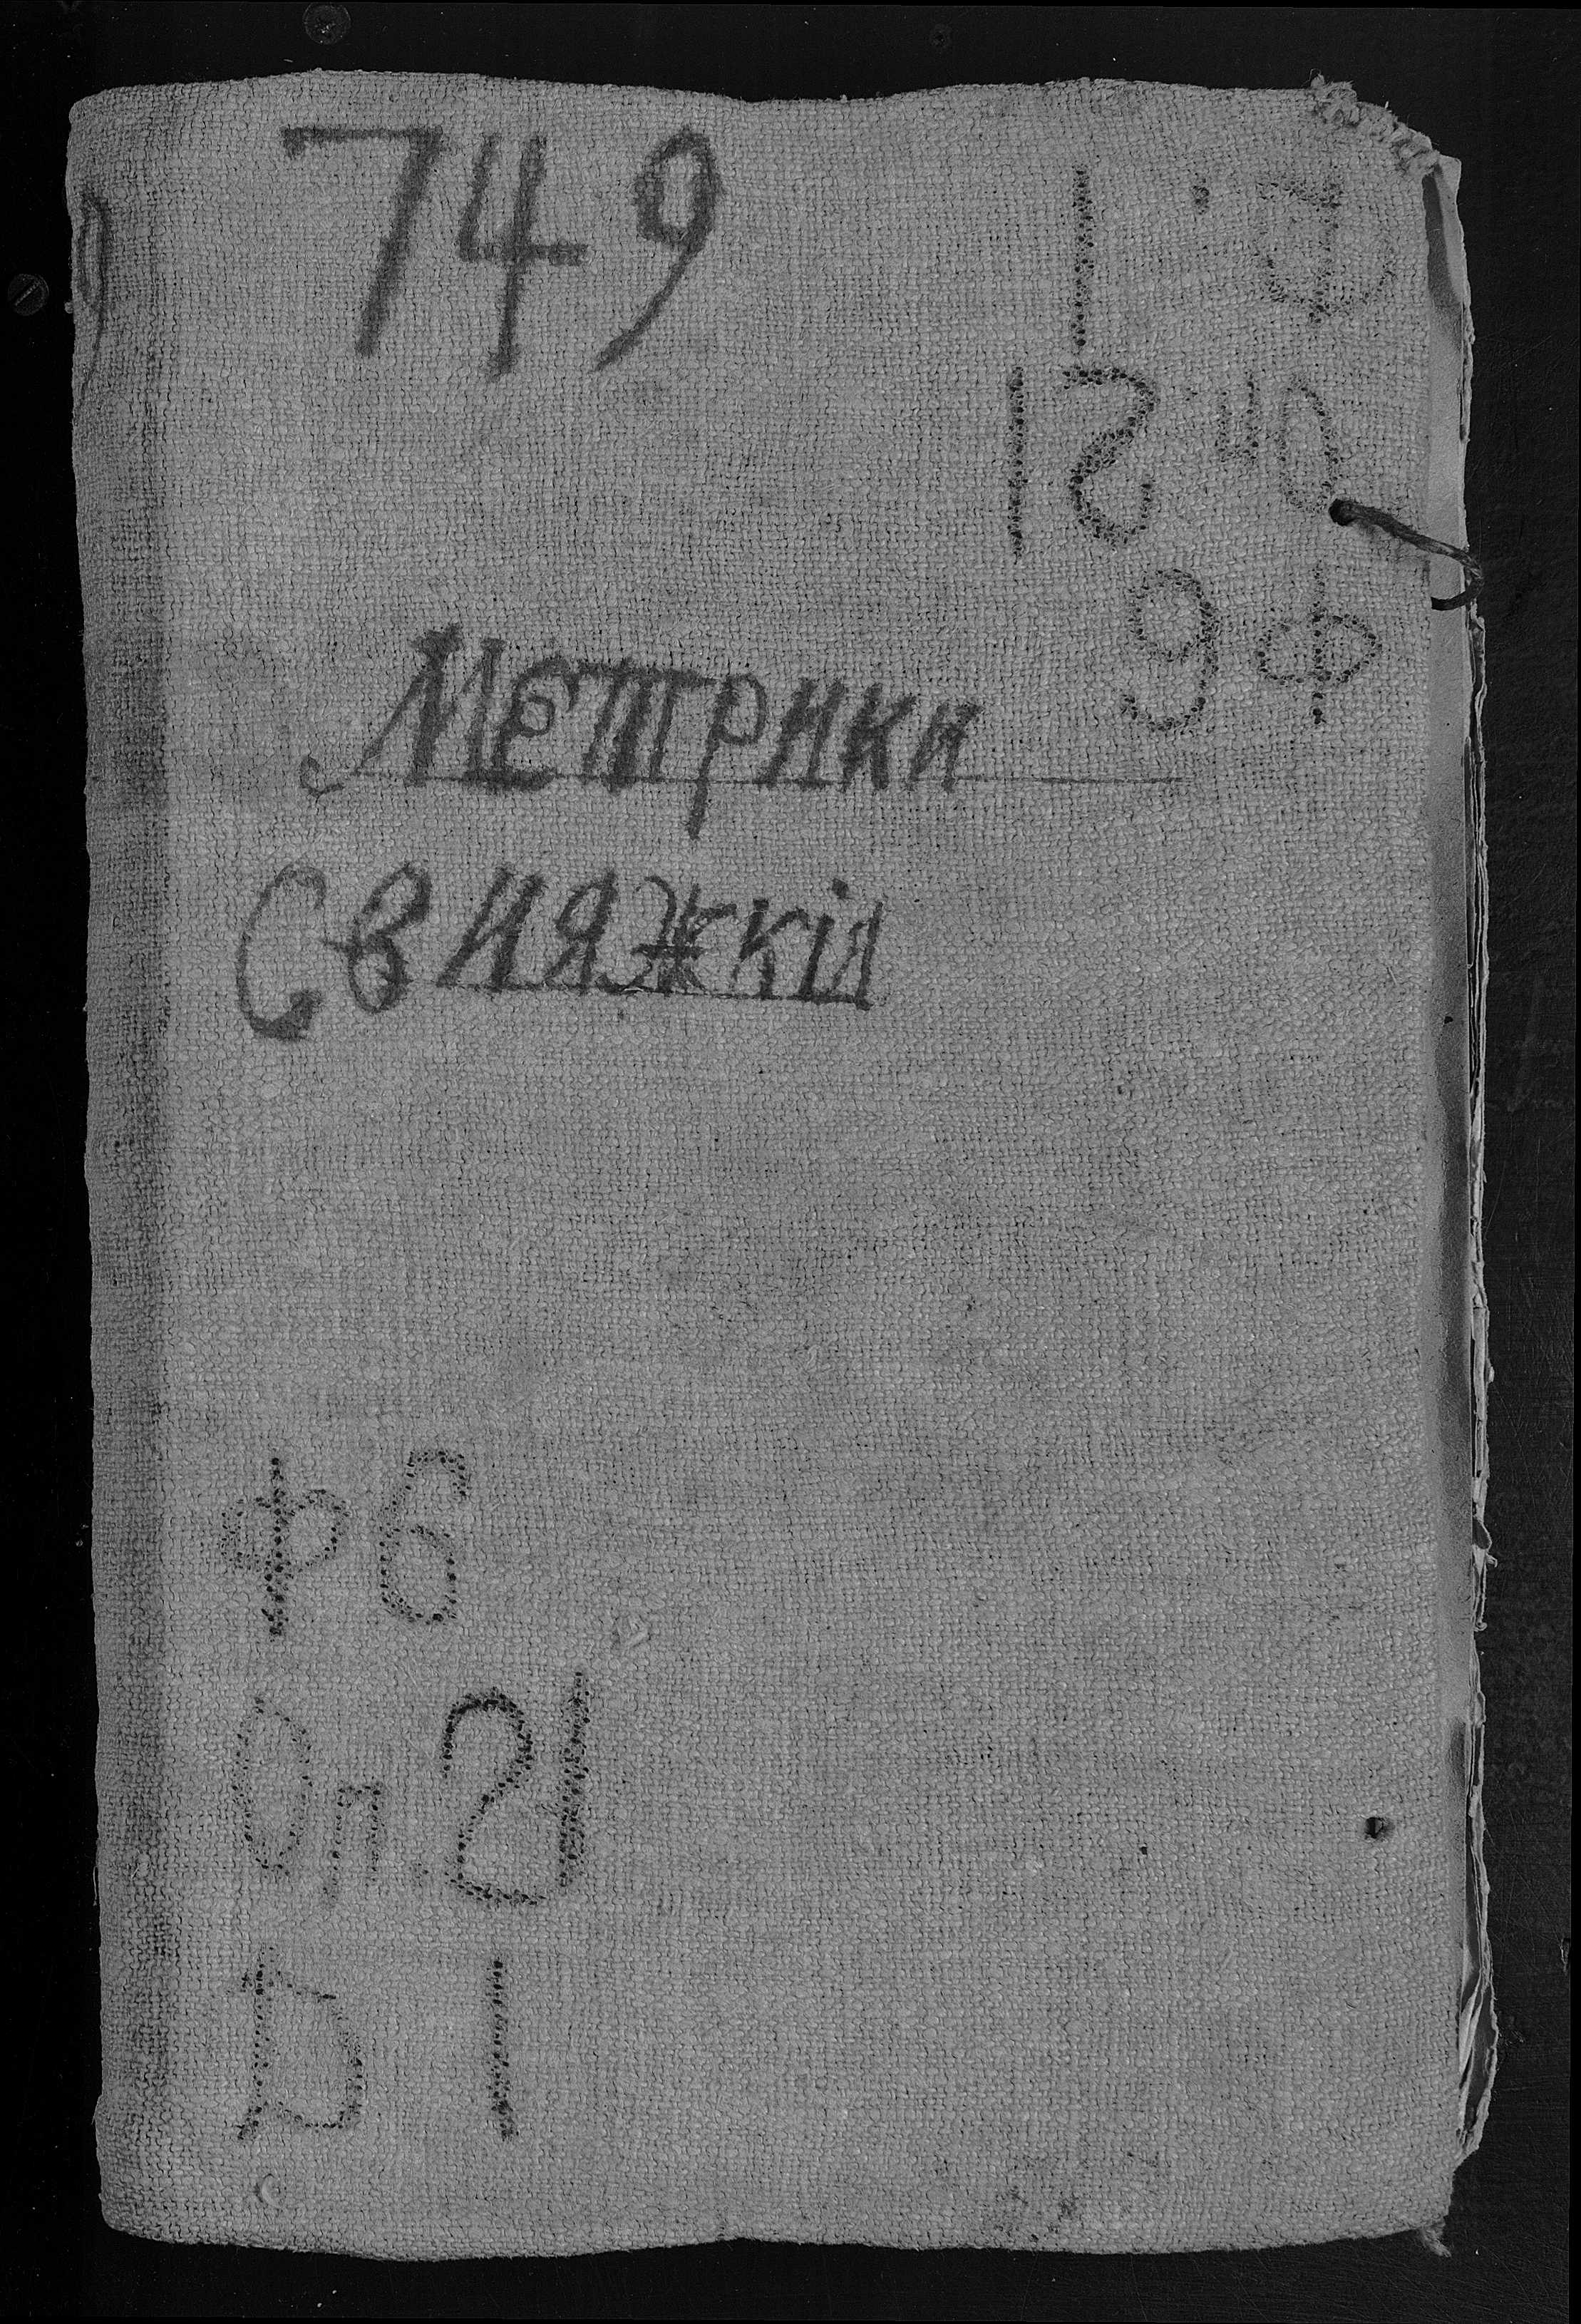 749
Б. 1
Оп. 21
Ф 6
Метрики
Свияжкія
Ф 6
Оп. 21
Б 1